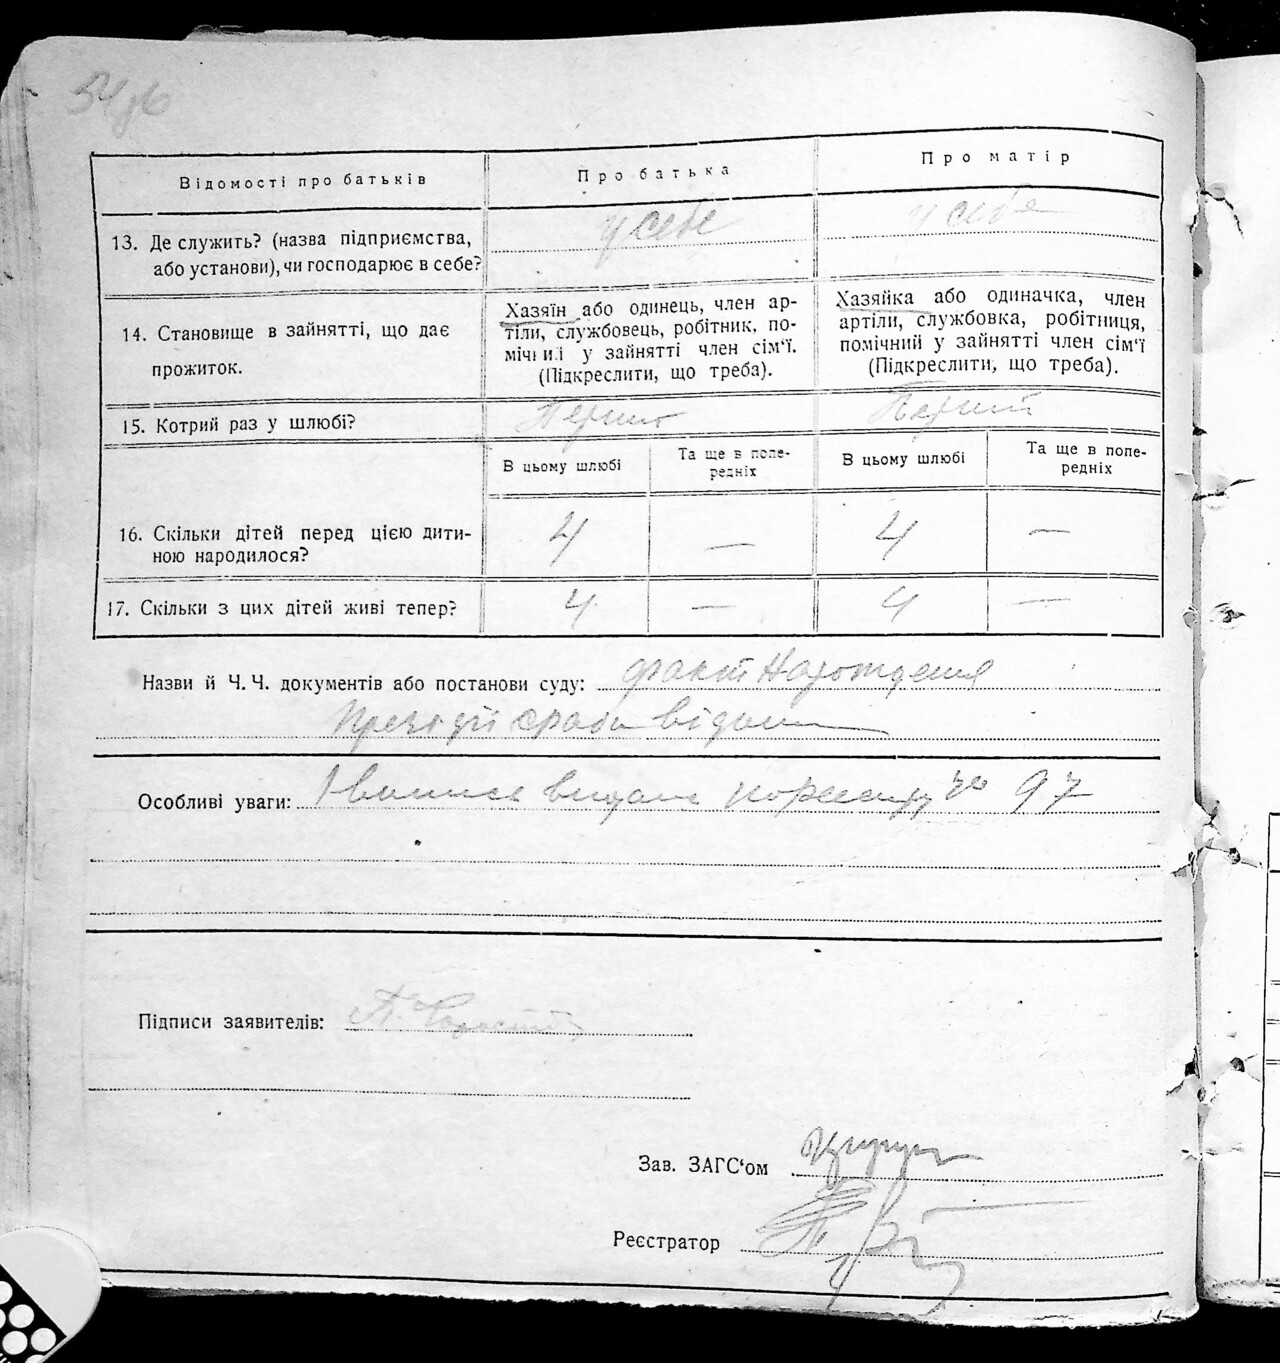 Відомості про батьків
Про батька
Про матір
13. Де служить? (назва підприємства,
або установи), чи господарює в себе?
у себе
у себе
14. Становище в зайнятті, що дає
прожиток.
Хазяїн або одинець, член ар-
тіли, службовець, робітник, по-
мічний у зайнятті член сім'ї.
(Підкреслити, що треба).
Хазяйка або одиначка, член
артіли, службовка, робітниця,
помічний у зайнятті член сім'ї
(Підкреслити, що треба).
15. Котрий раз у шлюбі?
Перший
В цьому шлюбі
Та ще в попе-
редніх
В цьому шлюбі
Та ще в попе-
редніх
16. Скільки дітей перед цією дити-
ною народилося?
4 — 4 —
17. Скільки з цих дітей живі тепер?
4 — 4 —
Назви й Ч. Ч. документів або постанови суду: факт Нарождения
Особливі уваги: видано 97
Підписи заявителів:
Зав. ЗАГС'ом
Реєстратор